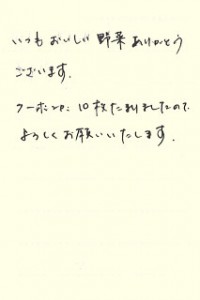 いつも おいしい 野菜 ありがとう
ございます.
クーポンは 10枚たまりましたので
よろしく お願いいたします.